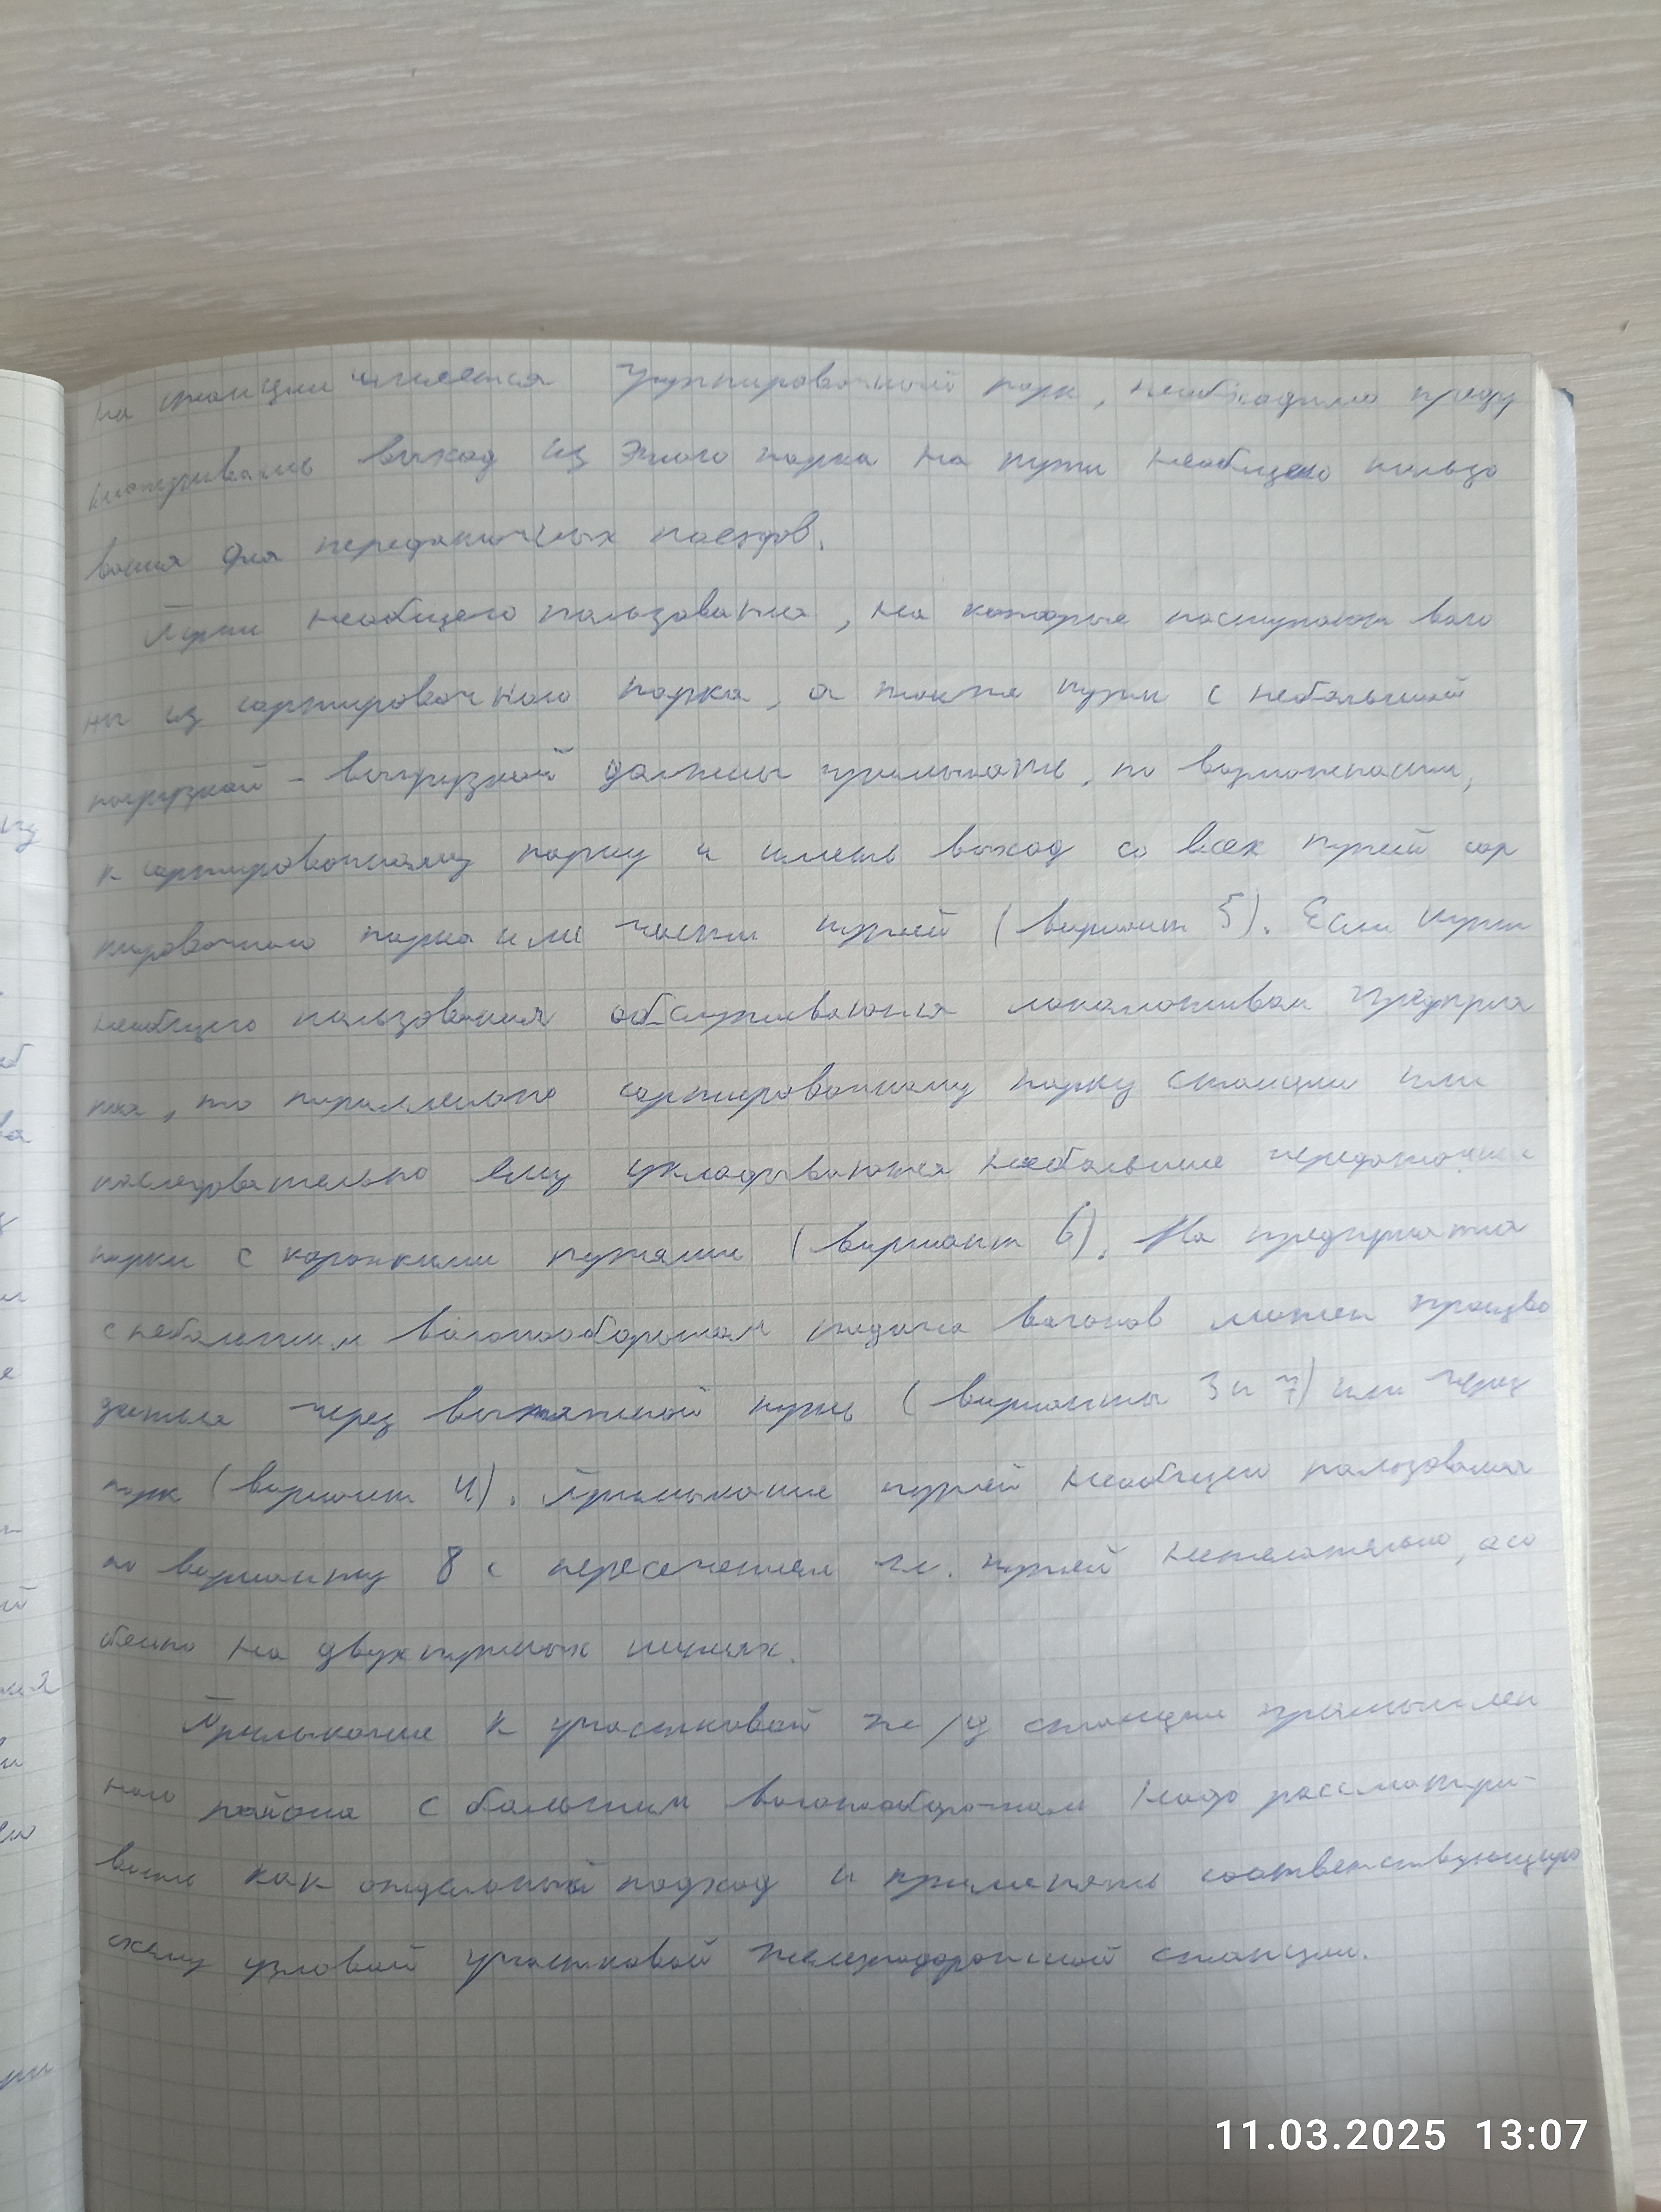 на станции имеется группировочный парк, необходимо преду
сматривать выход из этого парка на пути необщего пользо
вания для передаточных поездов.
Пути необщего пользования, на которые поступают ваго
ны из сортировочного парка, а также пути с небольшой
погрузкой - выгрузкой должны примыкать, по возможности,
к сортировочному парку и иметь выход со всех путей сор
тировочного парка или части путей (вариант 5). Если пути
необщего пользования обслуживаются локомотивом предприя
тия, то параллельно сортировочному парку станции или
последовательно ему укладываются небольшие передаточные
парки с короткими путями (вариант 6). На предприятия
с небольшим вагонооборотом подача вагонов может произво
диться через вытяжной путь (варианты 3 и 7) или через
парк (вариант 4). Примыкание путей необщего пользования
по варианту 8 с пересечением гл. путей нежелательно, осо
бенно на двухпутных линиях.
Примыкание к участковой ж/д станции промышлен
ного района с большим вагонооборотом надо рассматри-
вать как отдельный подход и применять соответствующую
схему узловой участковой железнодорожной станции.
11.03.2025 13:07